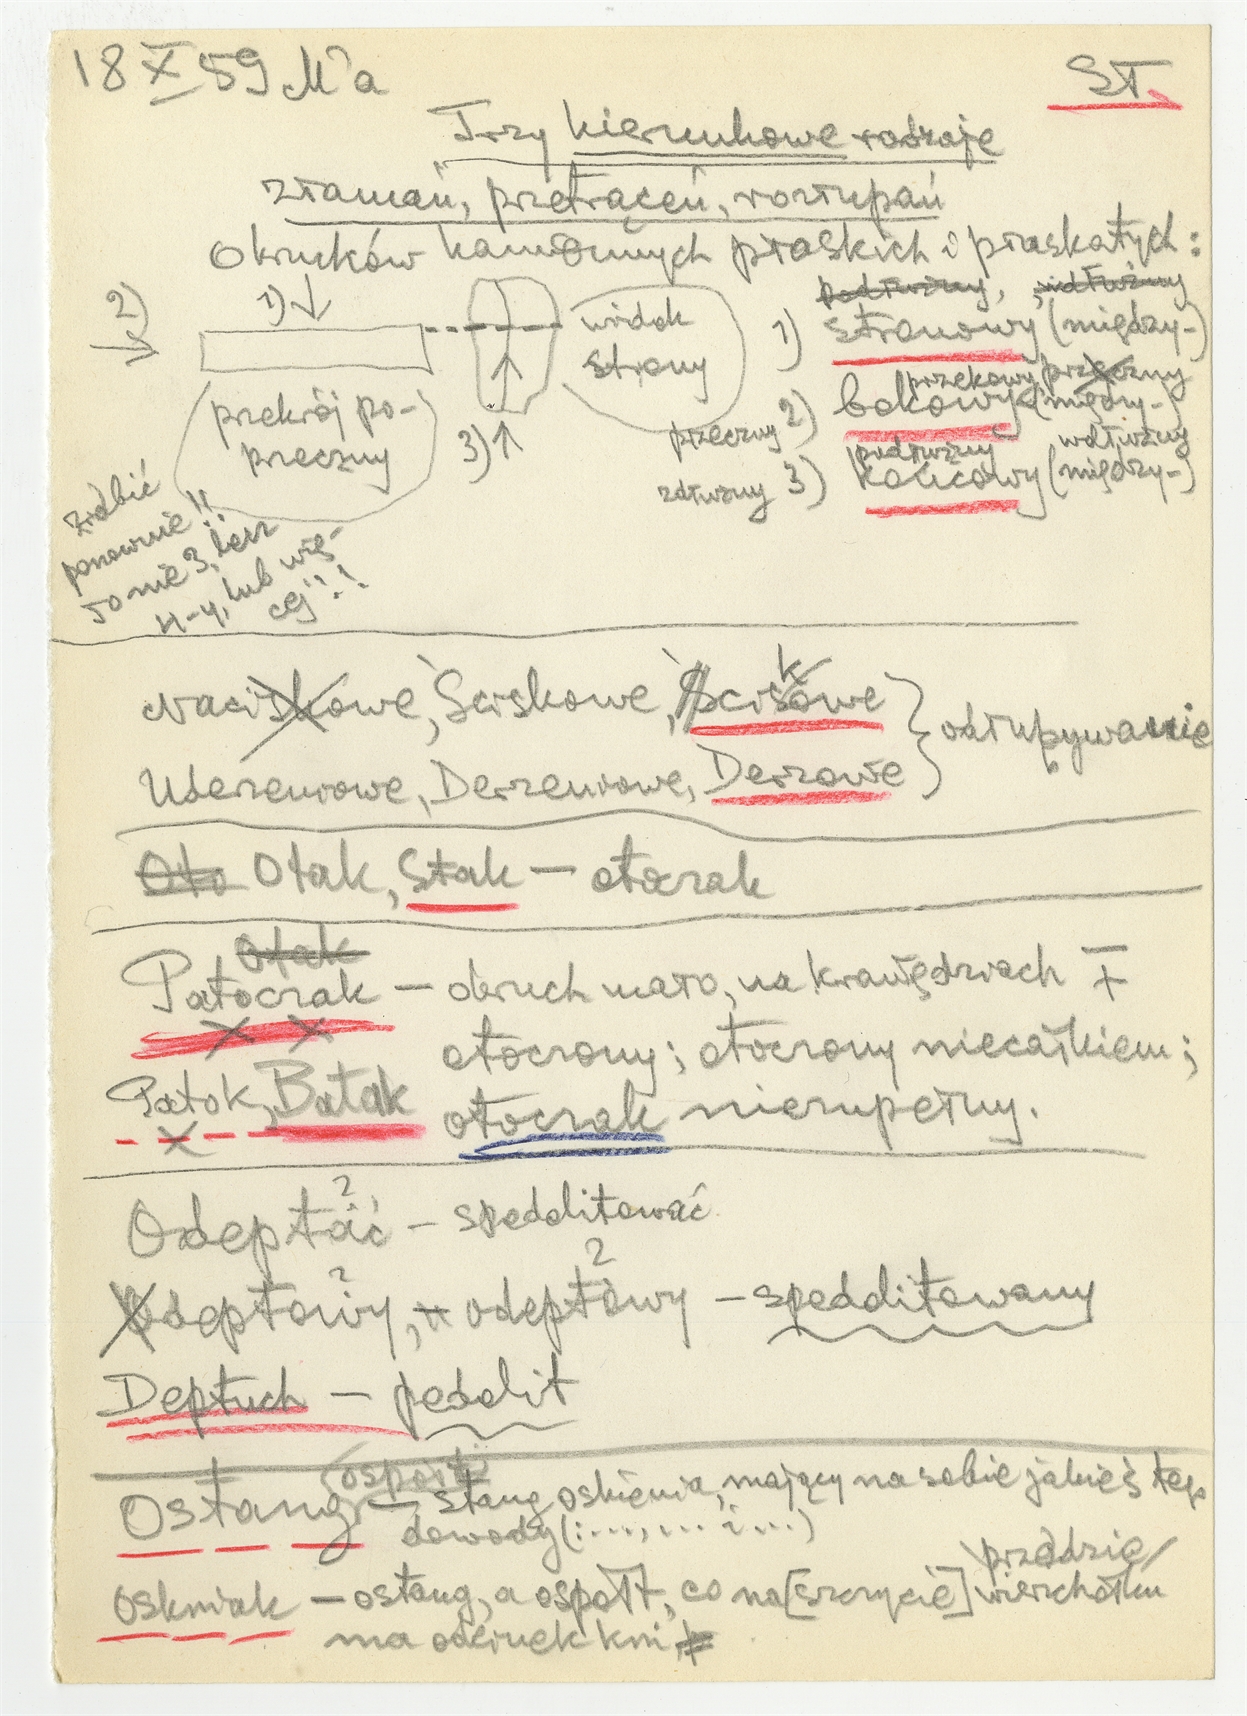 18 X 59 M'a
ST.
Trzy kierunkowe rodzaje
złamań, przetrąceń, rozłupań
okruchów kamiennych płaskich i płaskatych:
2)
1)
widok
strony
przekrój po-
przeczny
3)
podłużny,
1) stronowy (między-)
przekowy przeczny
przeczny 2) bokowy (między-)
podłużny wdłużny
zdłużny 3) końcowy (między-)
zrobić
ponownie!!
To nie 3, lecz
n-4, lub wię-
cej!!
Naciskowe, Ściskowe, Ściskowe
odłupywanie
Uderzeniowe, Derzeniowe, Derzowe
Oto Otak, Stak — otoczak
Otak
Patoczak — okruch mało, na krawędziach ∓
otoczony; otoczony niecałkiem;
Patok, Batak
otoczak niezupełny.
Odeptać — spedditować
?
Odeptowy, odeptowy — spedditowany
? ?
Deptuch — peddit
Ostang — stang oskienia, mający na sobie jakieś tego
dowody (:..., ... i ...)
prządzie/
Oskniak — ostang, a ospółt, co na [szczycie] wierzchołku
ma odcinek kni